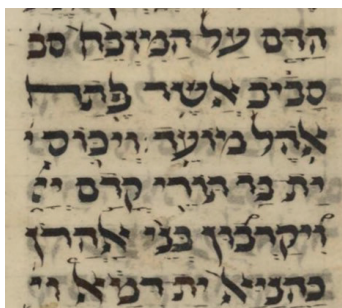 הדם על המזבח סב
סביב אשר פתח
אהל מועד ויכוס י
ית בר תורי קדם יי
ויקרבון בני אהרן
כהניא ית דמא וי